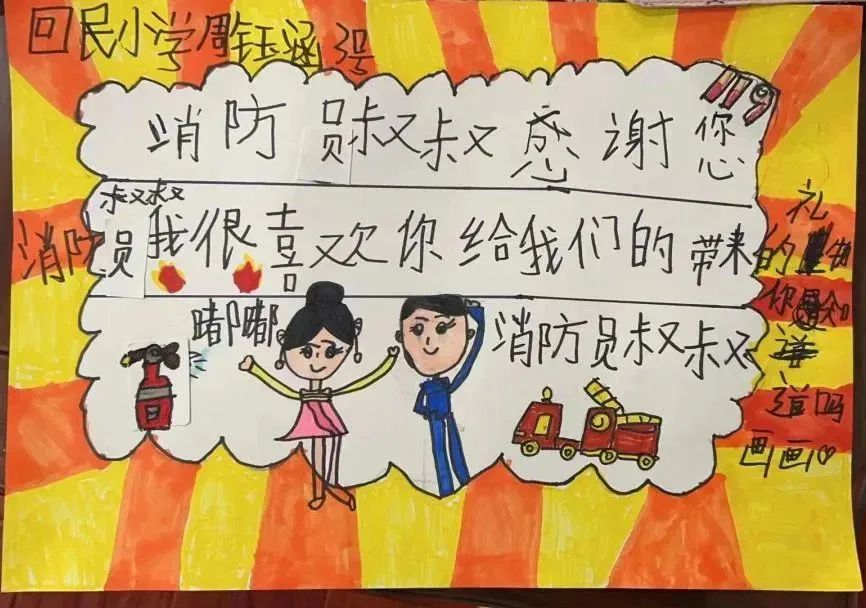 回民小学周钰涵3号
119
消防员叔叔感谢您
消防员叔叔我很喜欢你给我们的带来的礼物
你知道吗
画画
嘟嘟
消防员叔叔